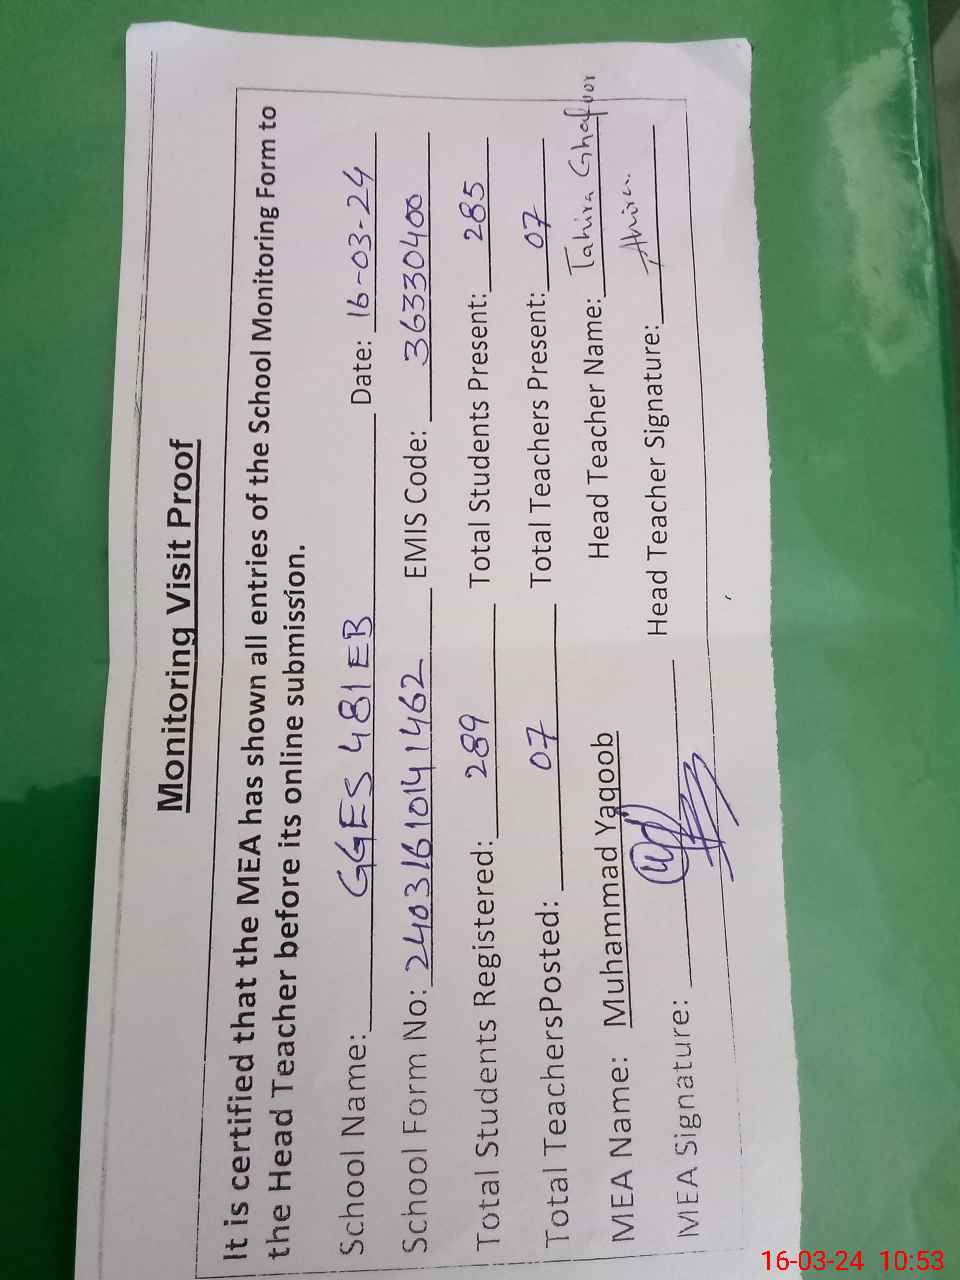 Monitoring Visit Proof
It is certified that the MEA has shown all entries of the School Monitoring Form to
the Head Teacher before its online submission.
School Name: GGES 481 EB Date: 16-03-24
School Form No: 2403161014 1462 EMIS Code: 36330400
Total Students Registered: 289 Total Students Present: 285
Total TeachersPosted: 07 Total Teachers Present: 07
MEA Name: Muhammad Yaqoob Head Teacher Name: Tahira Ghafoor
MEA Signature: Head Teacher Signature:
16-03-24 10:53